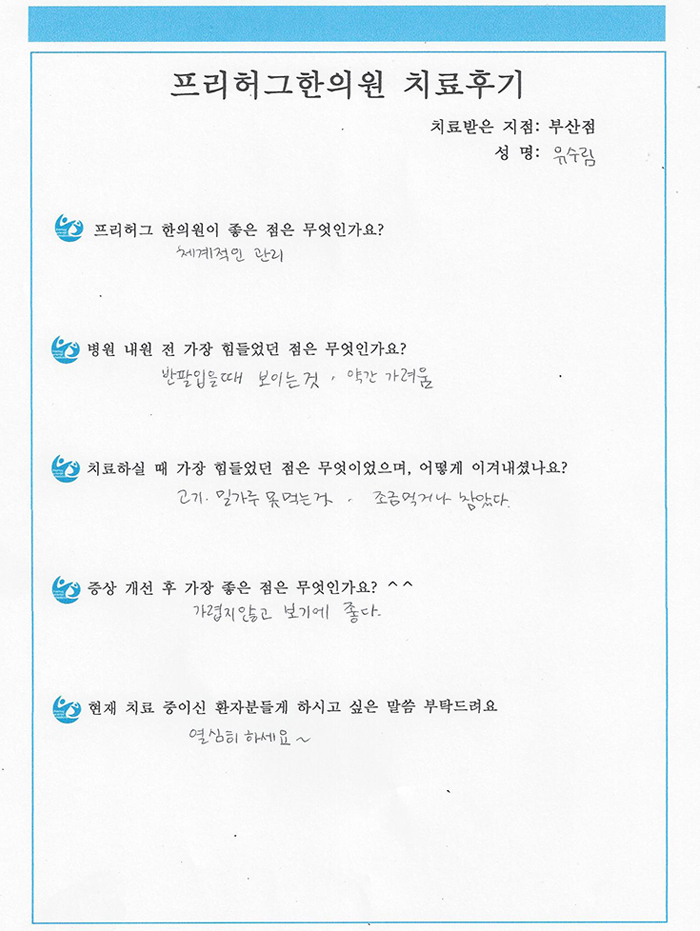 프리허그한의원 치료후기
치료받은 지점: 부산점
성 명: 유수림
프리허그 한의원이 좋은 점은 무엇인가요?
체계적인 관리
병원 내원 전 가장 힘들었던 점은 무엇인가요?
반팔입을때 보이는것, 약간 가려움
치료하실 때 가장 힘들었던 점은 무엇이었으며, 어떻게 이겨내셨나요?
고기. 밀가루 못먹는것. 조금먹거나 참았다.
증상 개선 후 가장 좋은 점은 무엇인가요? ^^
가렵지않고 보기에 좋다.
현재 치료 중이신 환자분들게 하시고 싶은 말씀 부탁드려요
열심히 하세요~